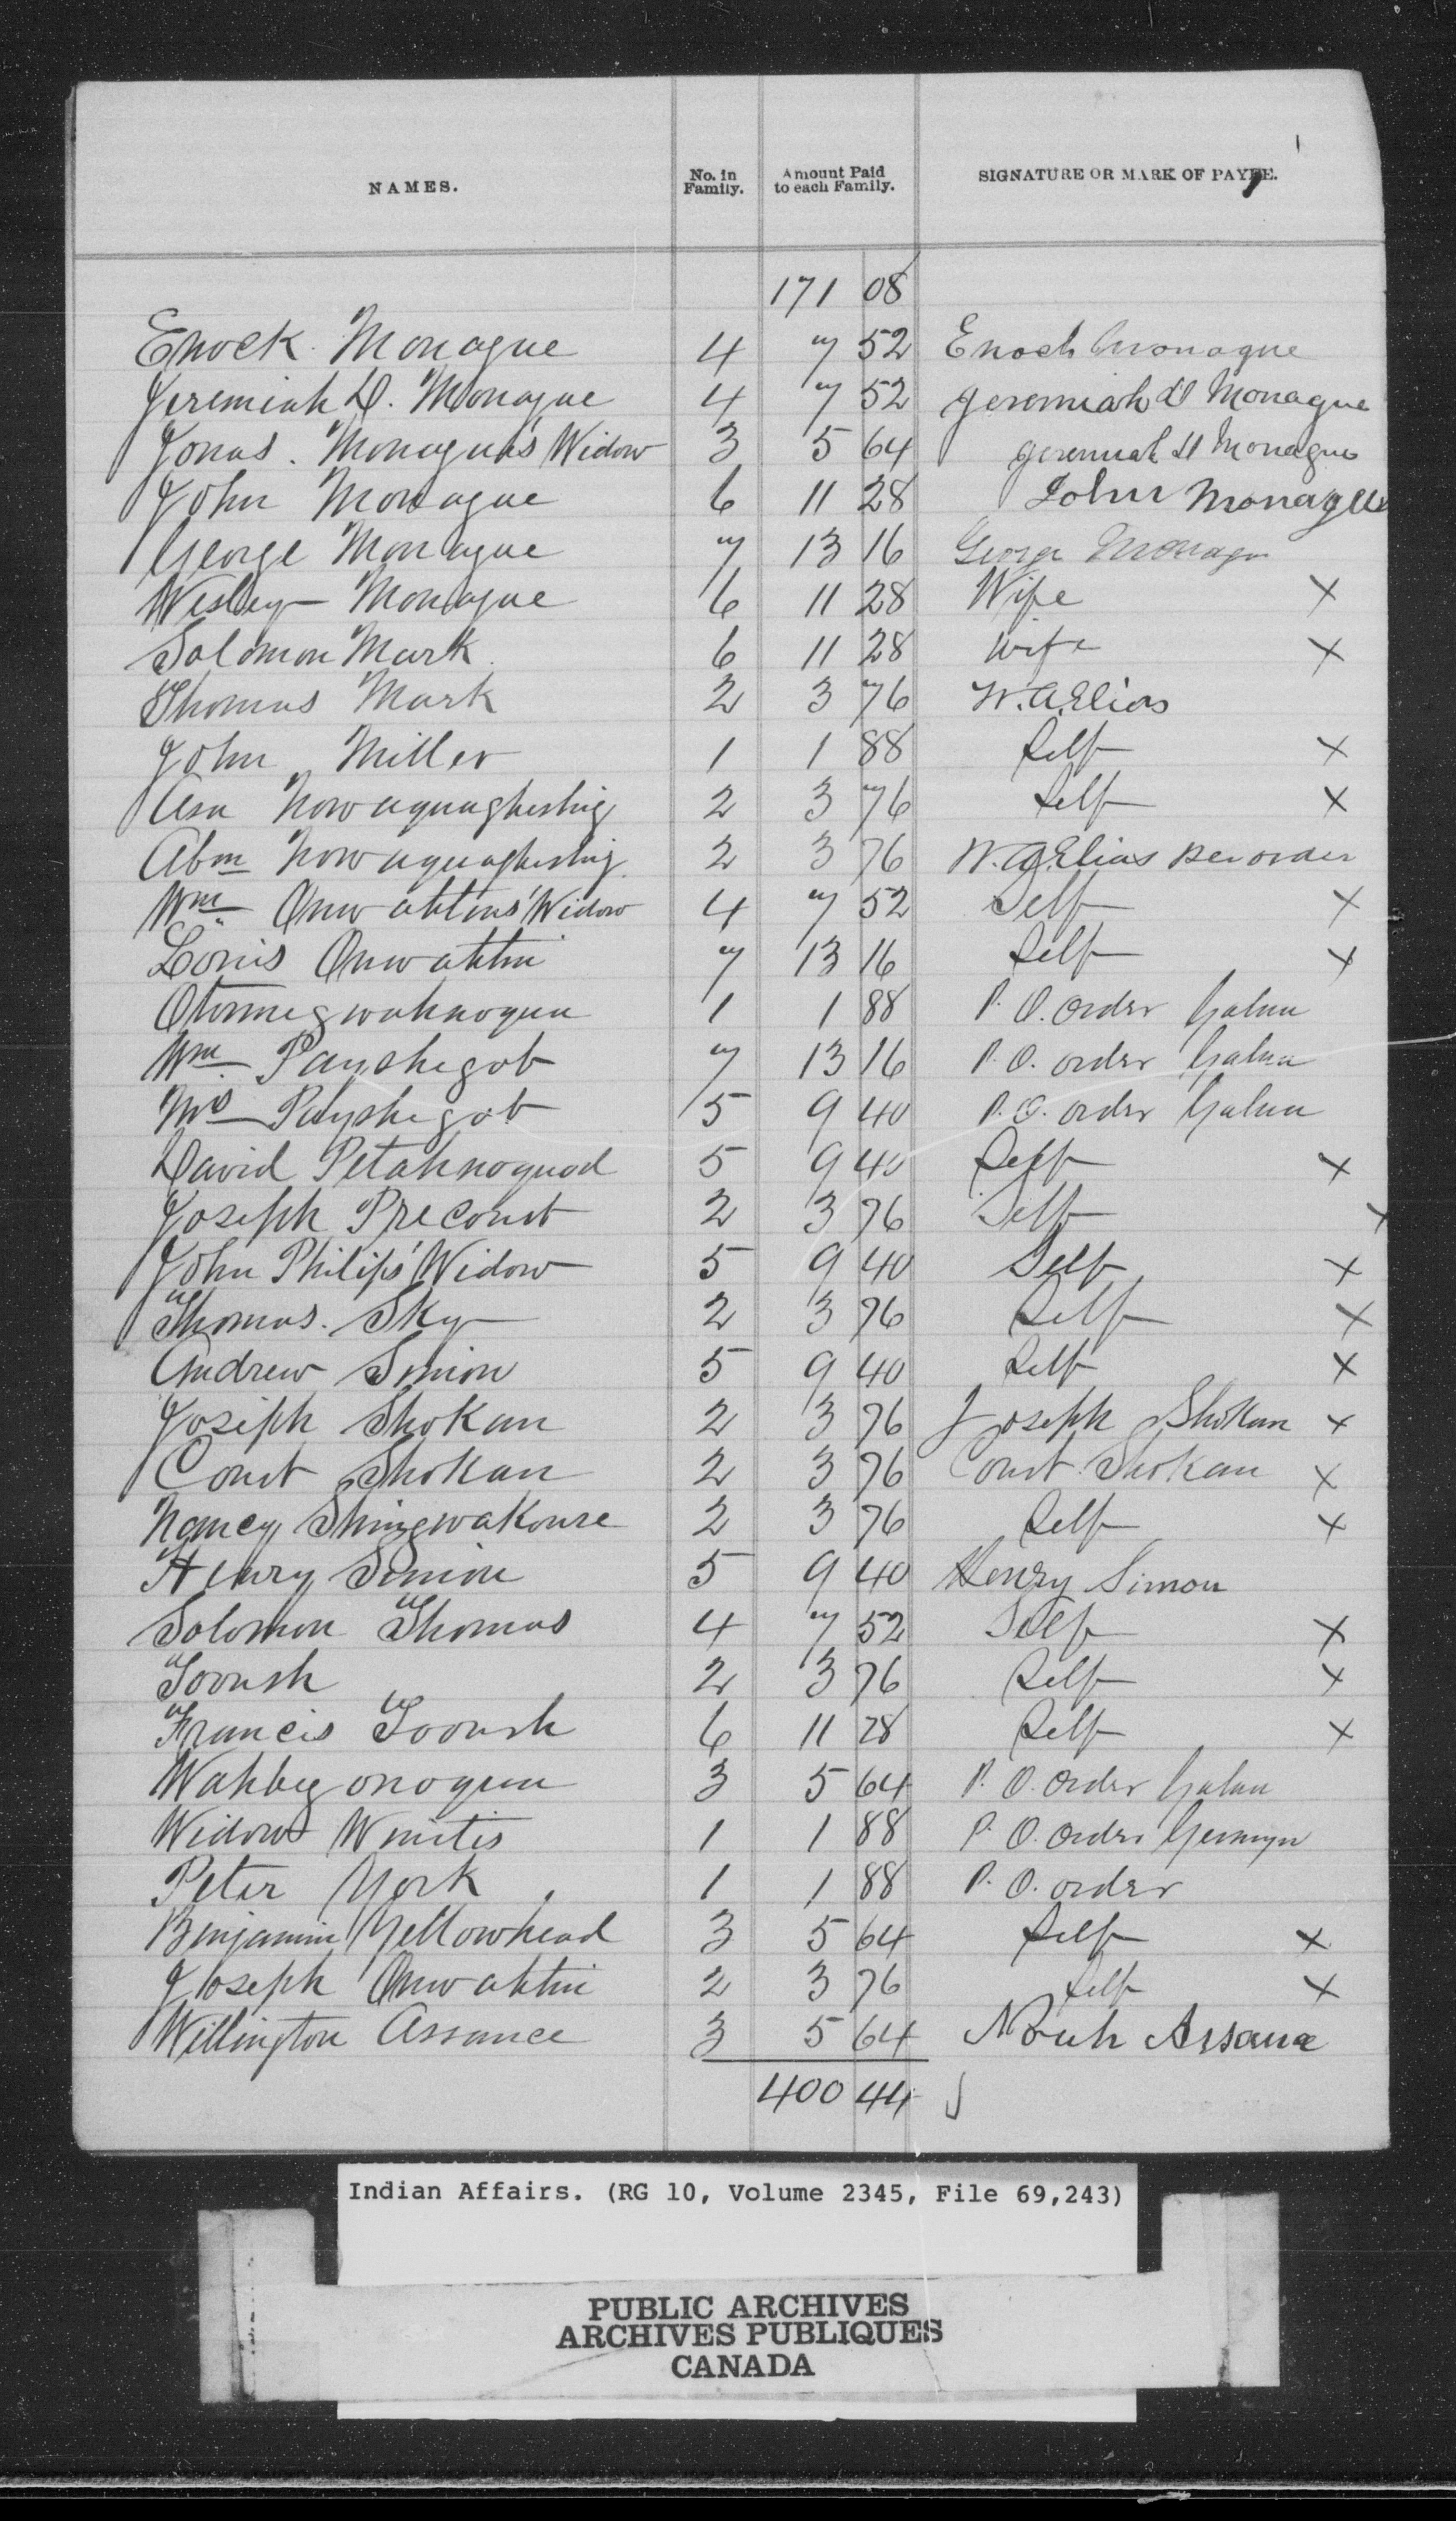 NAMES. No. in Family. Amount Paid to each Family. SIGNATURE OR MARK OF PAYEE.
171 08
Enock Monague 4 7 52 Enoch Monague
Jeremiah D. Monague 4 7 52 Jeremiah D Monague
Jonas. Monague's Widow 3 5 64 Jeremiah D Monague
John Monague 6 11 28 John Monague
George Monague 7 13 16 George Monague
Wesley Monague 6 11 28 Wife X
Solomon Mark 6 11 28 Wife X
Thomas Mark 2 3 76 W. A. Elias
John Miller 1 1 88 Self X
Asa Nowaquagheshig 2 3 76 Self X
Abm Nowaquagheshig 2 3 76 W. A. Elias per order
Wm Onwahtins' Widow 4 7 52 Self X
Louis Onwahtin 7 13 16 Self X
Otonnegwahnoqua 1 1 88 P. O. order
Wm Payshegob 7 13 16 P. O. order
Mrs Payshegob 5 9 40 P. O. order
David Petahnoquod 5 9 40 Self X
Joseph Precourt 2 3 76 Self X
John Philips' Widow 5 9 40 Self X
Thomas. Sky 2 3 76 Self X
Andrew Simon 5 9 40 Self X
Joseph Shokan 2 3 76 Joseph Shokan X
Court Shokan 2 3 76 Court Shokan X
Nancy Shingwakouse 2 3 76 Self X
Henry Simon 5 9 40 Henry Simon
Solomon Thomas 4 7 52 Self X
Tooush 2 3 76 Self X
Francis Tooush 6 11 28 Self X
Wahbegonoqua 3 5 64 P. O. order
Widow 1 1 88 P. O. order
Peter York 1 1 88 P. O. order
Benjamin Yellowhead 3 5 64 Self X
Joseph Onwahtin 2 3 76 Self X
Willington Assance 3 5 64 Noah Assance
400 44
Indian Affairs. (RG 10, Volume 2345, File 69,243)
PUBLIC ARCHIVES
ARCHIVES PUBLIQUES
CANADA